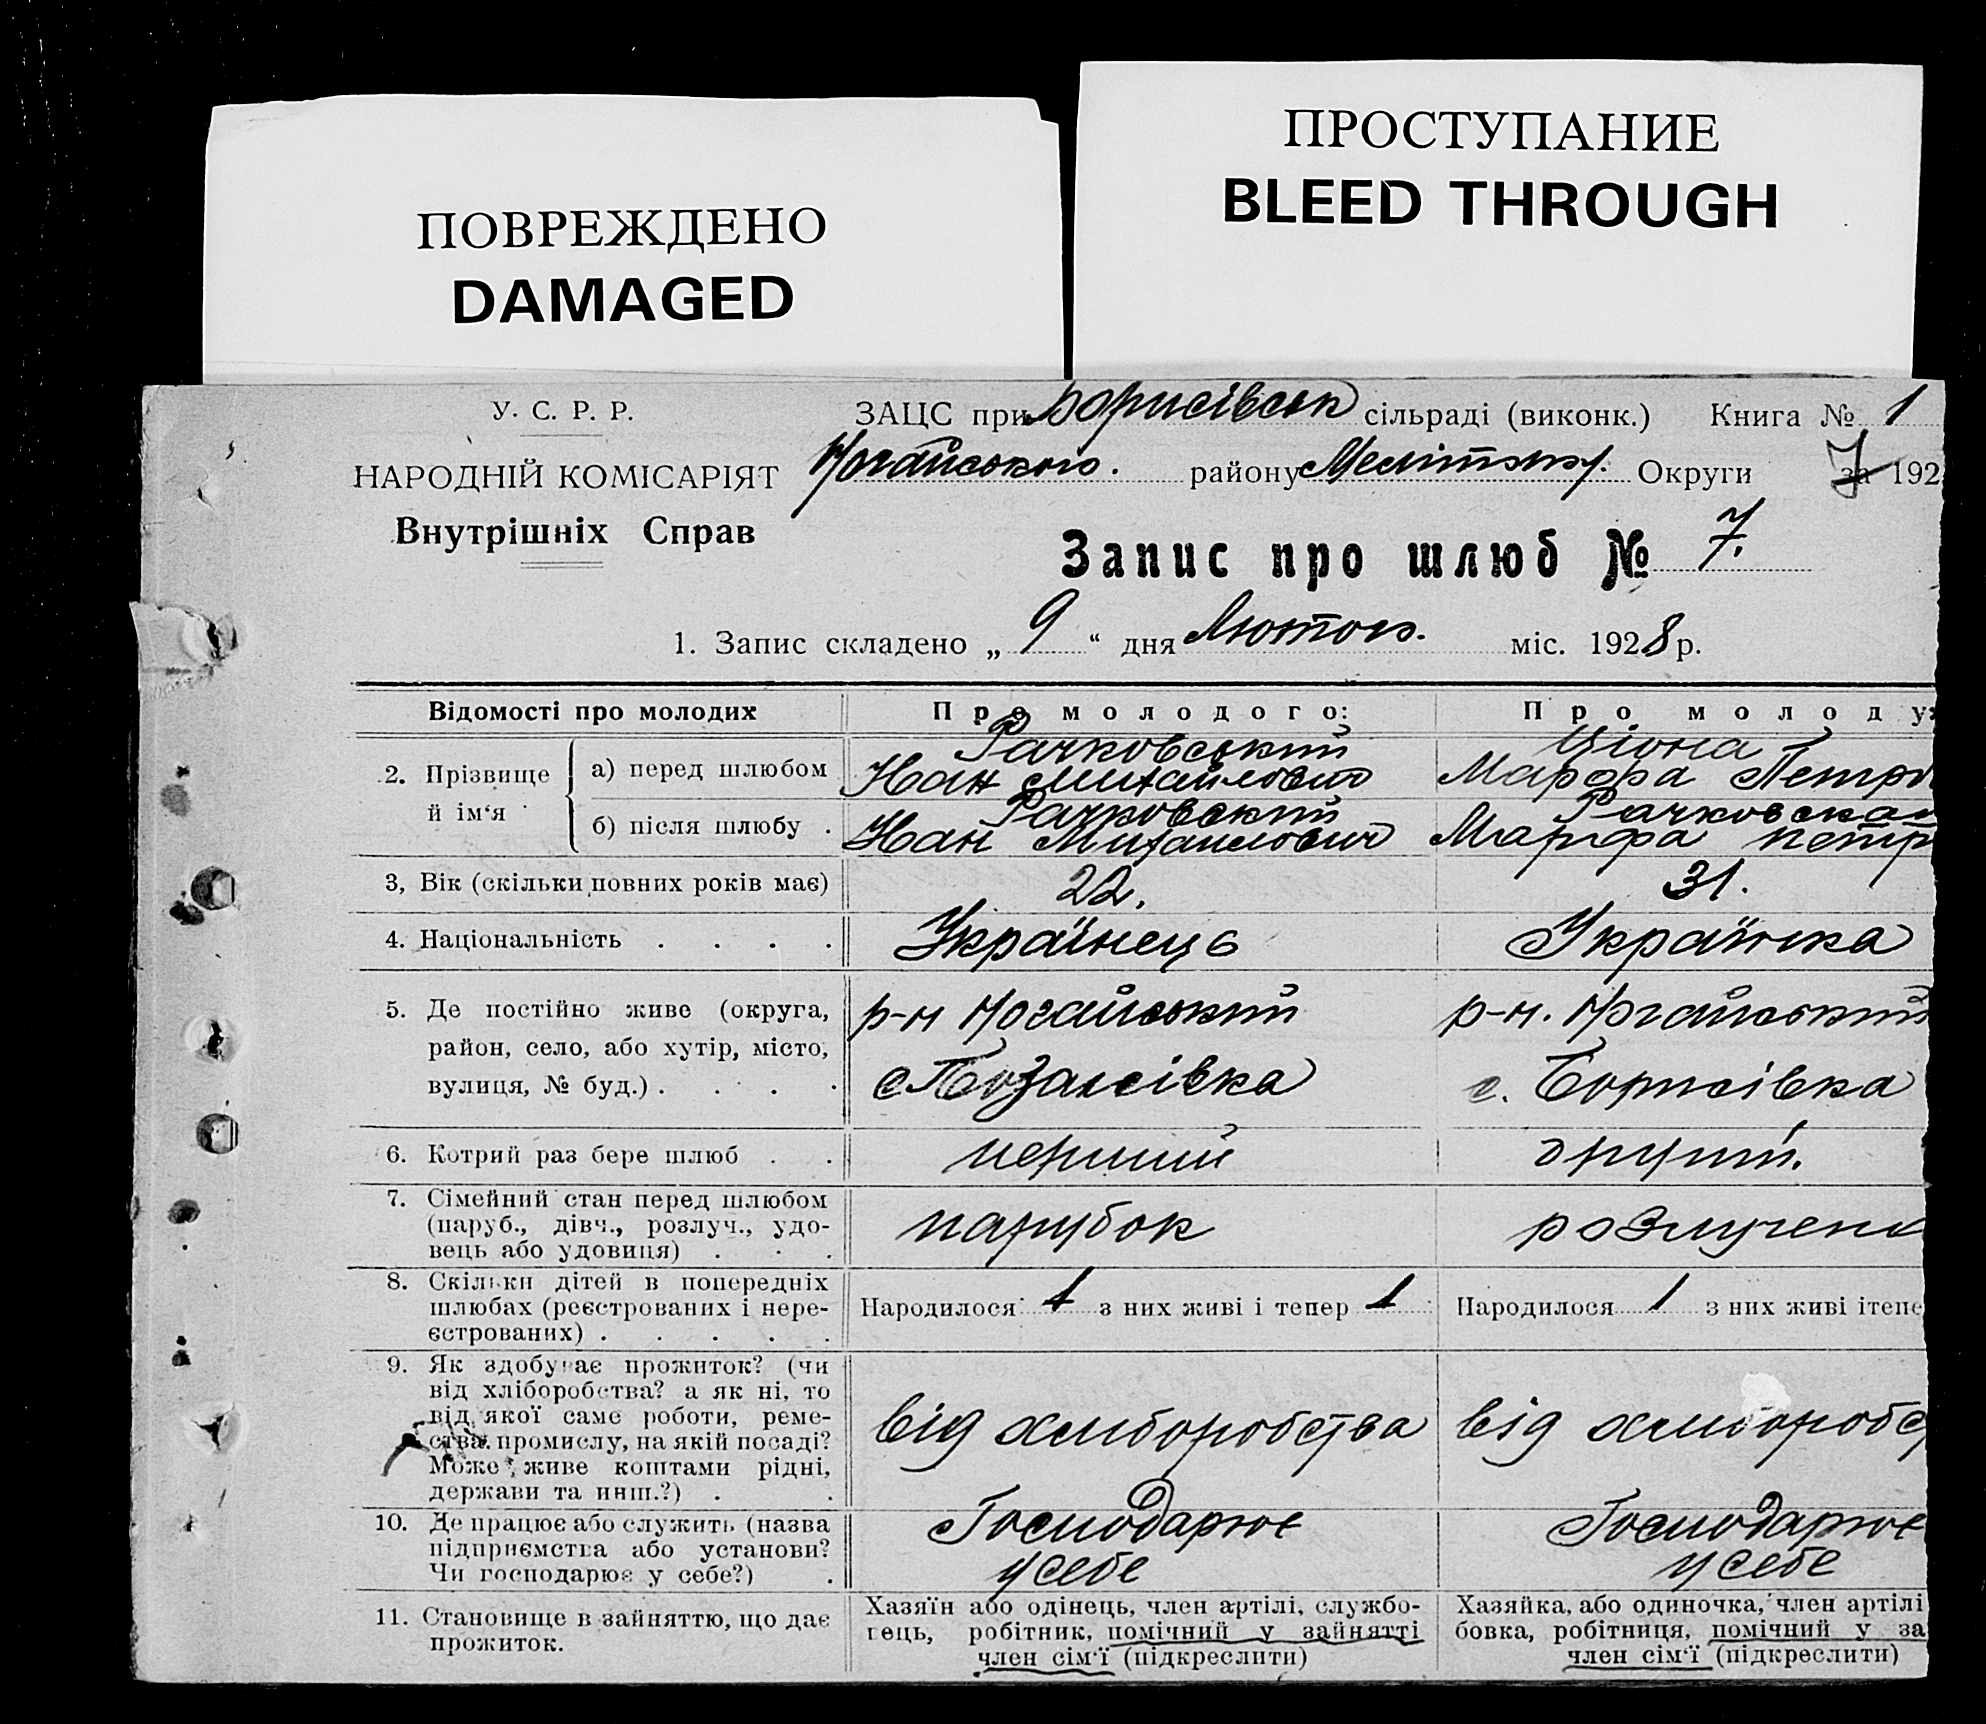 ПОВРЕЖДЕНО
DAMAGED
ПРОСТУПАНИЕ
BLEED THROUGH
У. С. Р. Р.
НАРОДНІЙ КОМІСАРІЯТ
Внутрішніх Справ
ЗАЦС при Борисівськ сільраді (виконк.) Книга № 1
Ногайського. району Мелітпк. Округи за 7 192
Запис про шлюб № 7.
1. Запис складено „ 9 “ дня Лютого. міс. 1928 р.
Відомості про молодих
Про молодого:
Про молоду:
2. Прізвище й ім‘я
а) перед шлюбом
Рачковський
Иан Михайлович
Марфа Петр
б) після шлюбу .
Рачковский
Иан Михайлович
Рачковская
Марфа Петр
3, Вік (скільки повних років має)
22.
31.
4. Національність . . . .
Українець
Українка
5. Де постійно живе (округа,
район, село, або хутір, місто,
вулиця, № буд.) . . . .
р-н Ногайський
р-н. Ногайський
с. Борисівка
6. Котрий раз бере шлюб . .
перший
другий.
7. Сімейний стан перед шлюбом
(паруб., дівч., розлуч., удо-
вець або удовиця) . . .
парубок
розлучена
8. Скільки дітей в попередніх
шлюбах (реєстрованих і нере-
єстрованих) . . . . .
Народилося 1 з них живі і тепер 1
Народилося 1 з них живі ітепе
9. Як здобуває прожиток? (чи
від хліборобства? а як ні, то
від якої саме роботи, реме-
ства. промислу, на якій посаді?
Може живе коштами рідні,
держави та инш.?) . .
від хліборобства
від хлiборобс
10. Де працює або служить (назва
підприємства або установи?
Чи господарює у себе?) .
Господарює
у себе
Господарює
у себе
11. Становище в зайняттю, що дає
прожиток.
Хазяїн або одінець, член артілі, службо-
вець, робітник, помічний у зайнятті
член сім‘ї (підкреслити)
Хазяйка, або одиночка, член артілі
бовка, робітниця, помічний у за
член сім‘ї (підкреслити)